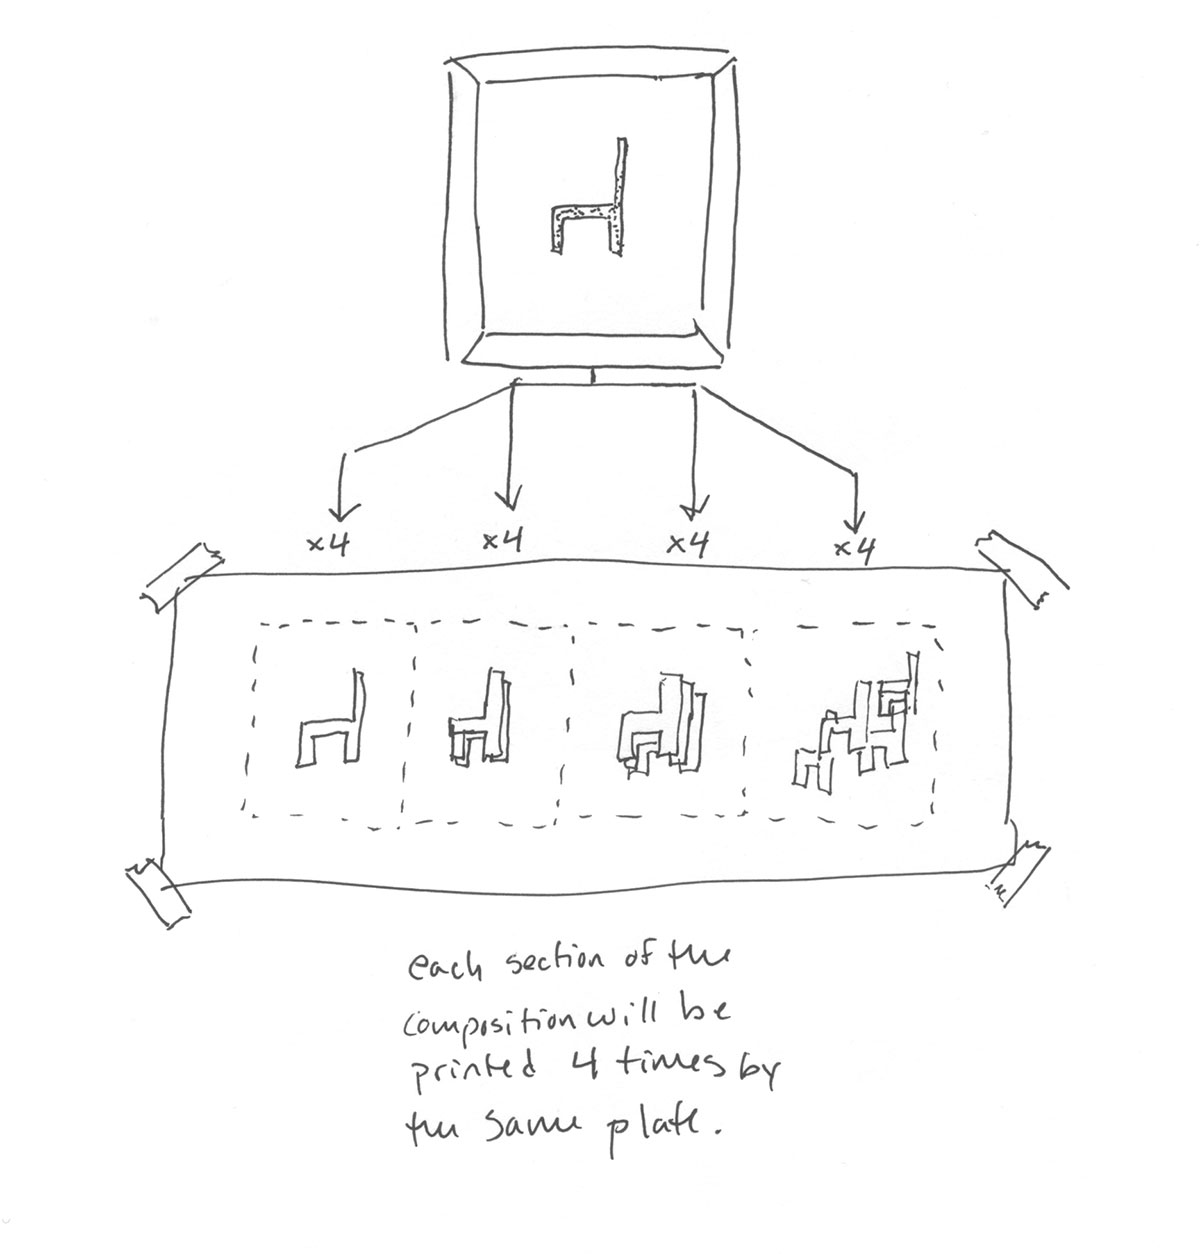 x4 x4 x4 x4
each section of the
composition will be
printed 4 times by
the same plate.